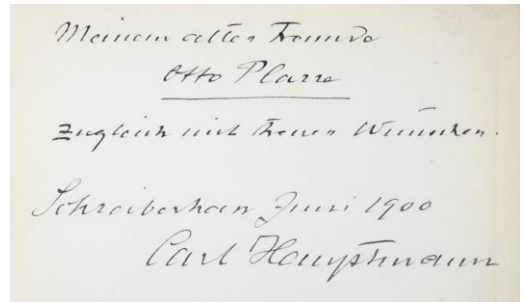 Meinem alten Freunde
Otto Plarre
zugleich mit treuen Wünschen.
Schreiberhau Juni 1900
Carl Hauptmann